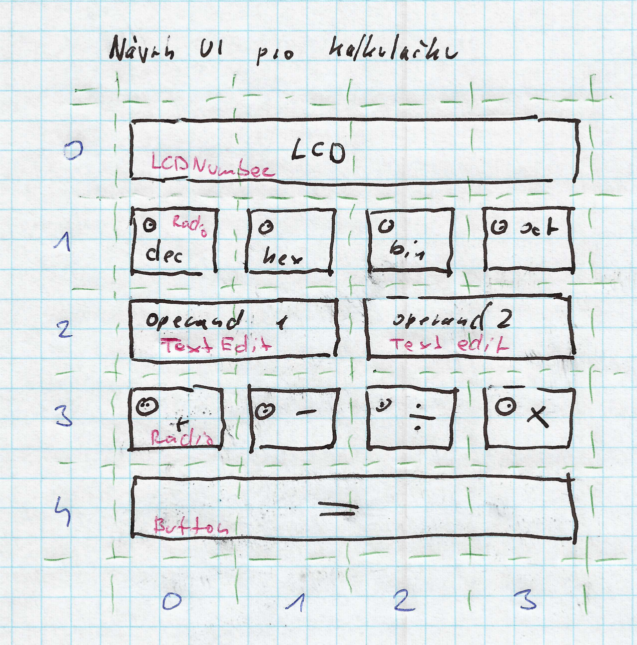 Návrh UI pro kalkulačku
0 LCD
LCDNumber
1 Radio
dec hex bin oct
2 operand 1 operand 2
Text Edit Text edit
3 + - ÷ ×
Radio
4 =
Button
0 1 2 3